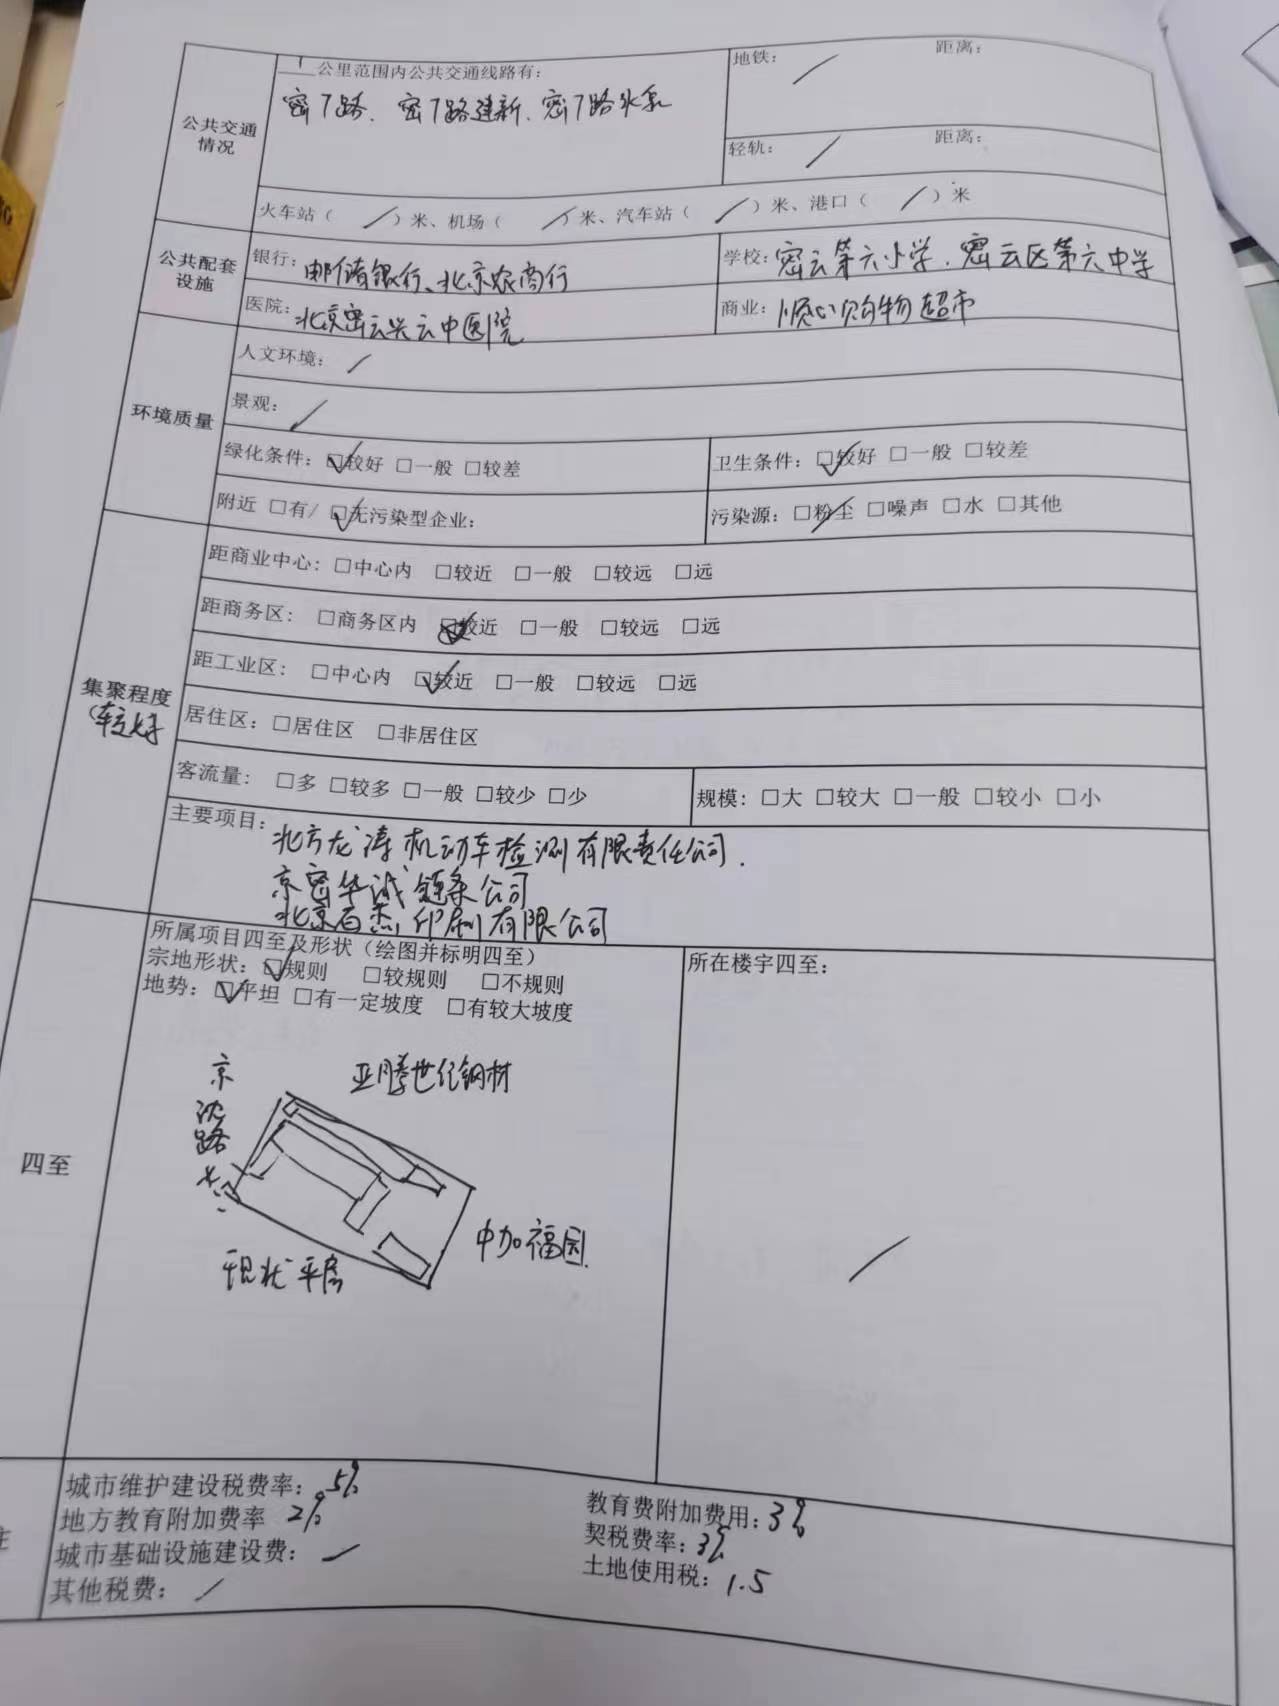 公共交通情况
1 公里范围内公共交通线路有：
密7路、密7路建新、密7路水泉
地铁： / 距离：
轻轨： / 距离：
火车站（ / ）米、机场（ / ）米、汽车站（ / ）米、港口（ / ）米
公共配套设施
银行：邮储银行、北京农商行
学校：密云第六小学、密云区第六中学
医院：北京密云兴云中医院
商业：顺心购物超市
环境质量
人文环境： /
景观： /
绿化条件：☑较好 □一般 □较差
卫生条件：☑较好 □一般 □较差
附近 □有/ ☑无污染型企业：
污染源：□粉尘 □噪声 □水 □其他
集聚程度
(较好
距商业中心：□中心内 □较近 □一般 □较远 □远
距商务区：□商务区内 ☑较近 □一般 □较远 □远
距工业区：□中心内 ☑较近 □一般 □较远 □远
居住区：□居住区 □非居住区
客流量：□多 □较多 □一般 □较少 □少
规模：□大 □较大 □一般 □较小 □小
主要项目：
北方龙涛机动车检测有限责任公司、
京密华诚链条公司
北京百杰印刷有限公司
四至
所属项目四至及形状（绘图并标明四至）
宗地形状：☑规则 □较规则 □不规则
地势：☑平坦 □有一定坡度 □有较大坡度
所在楼宇四至：
/
京沈路
亚腾世纪钢材
中加福园
现状平房
注
城市维护建设税费率：5%
教育费附加费用：3%
地方教育附加费率 2%
契税费率：3%
城市基础设施建设费： /
土地使用税：1.5
其他税费： /